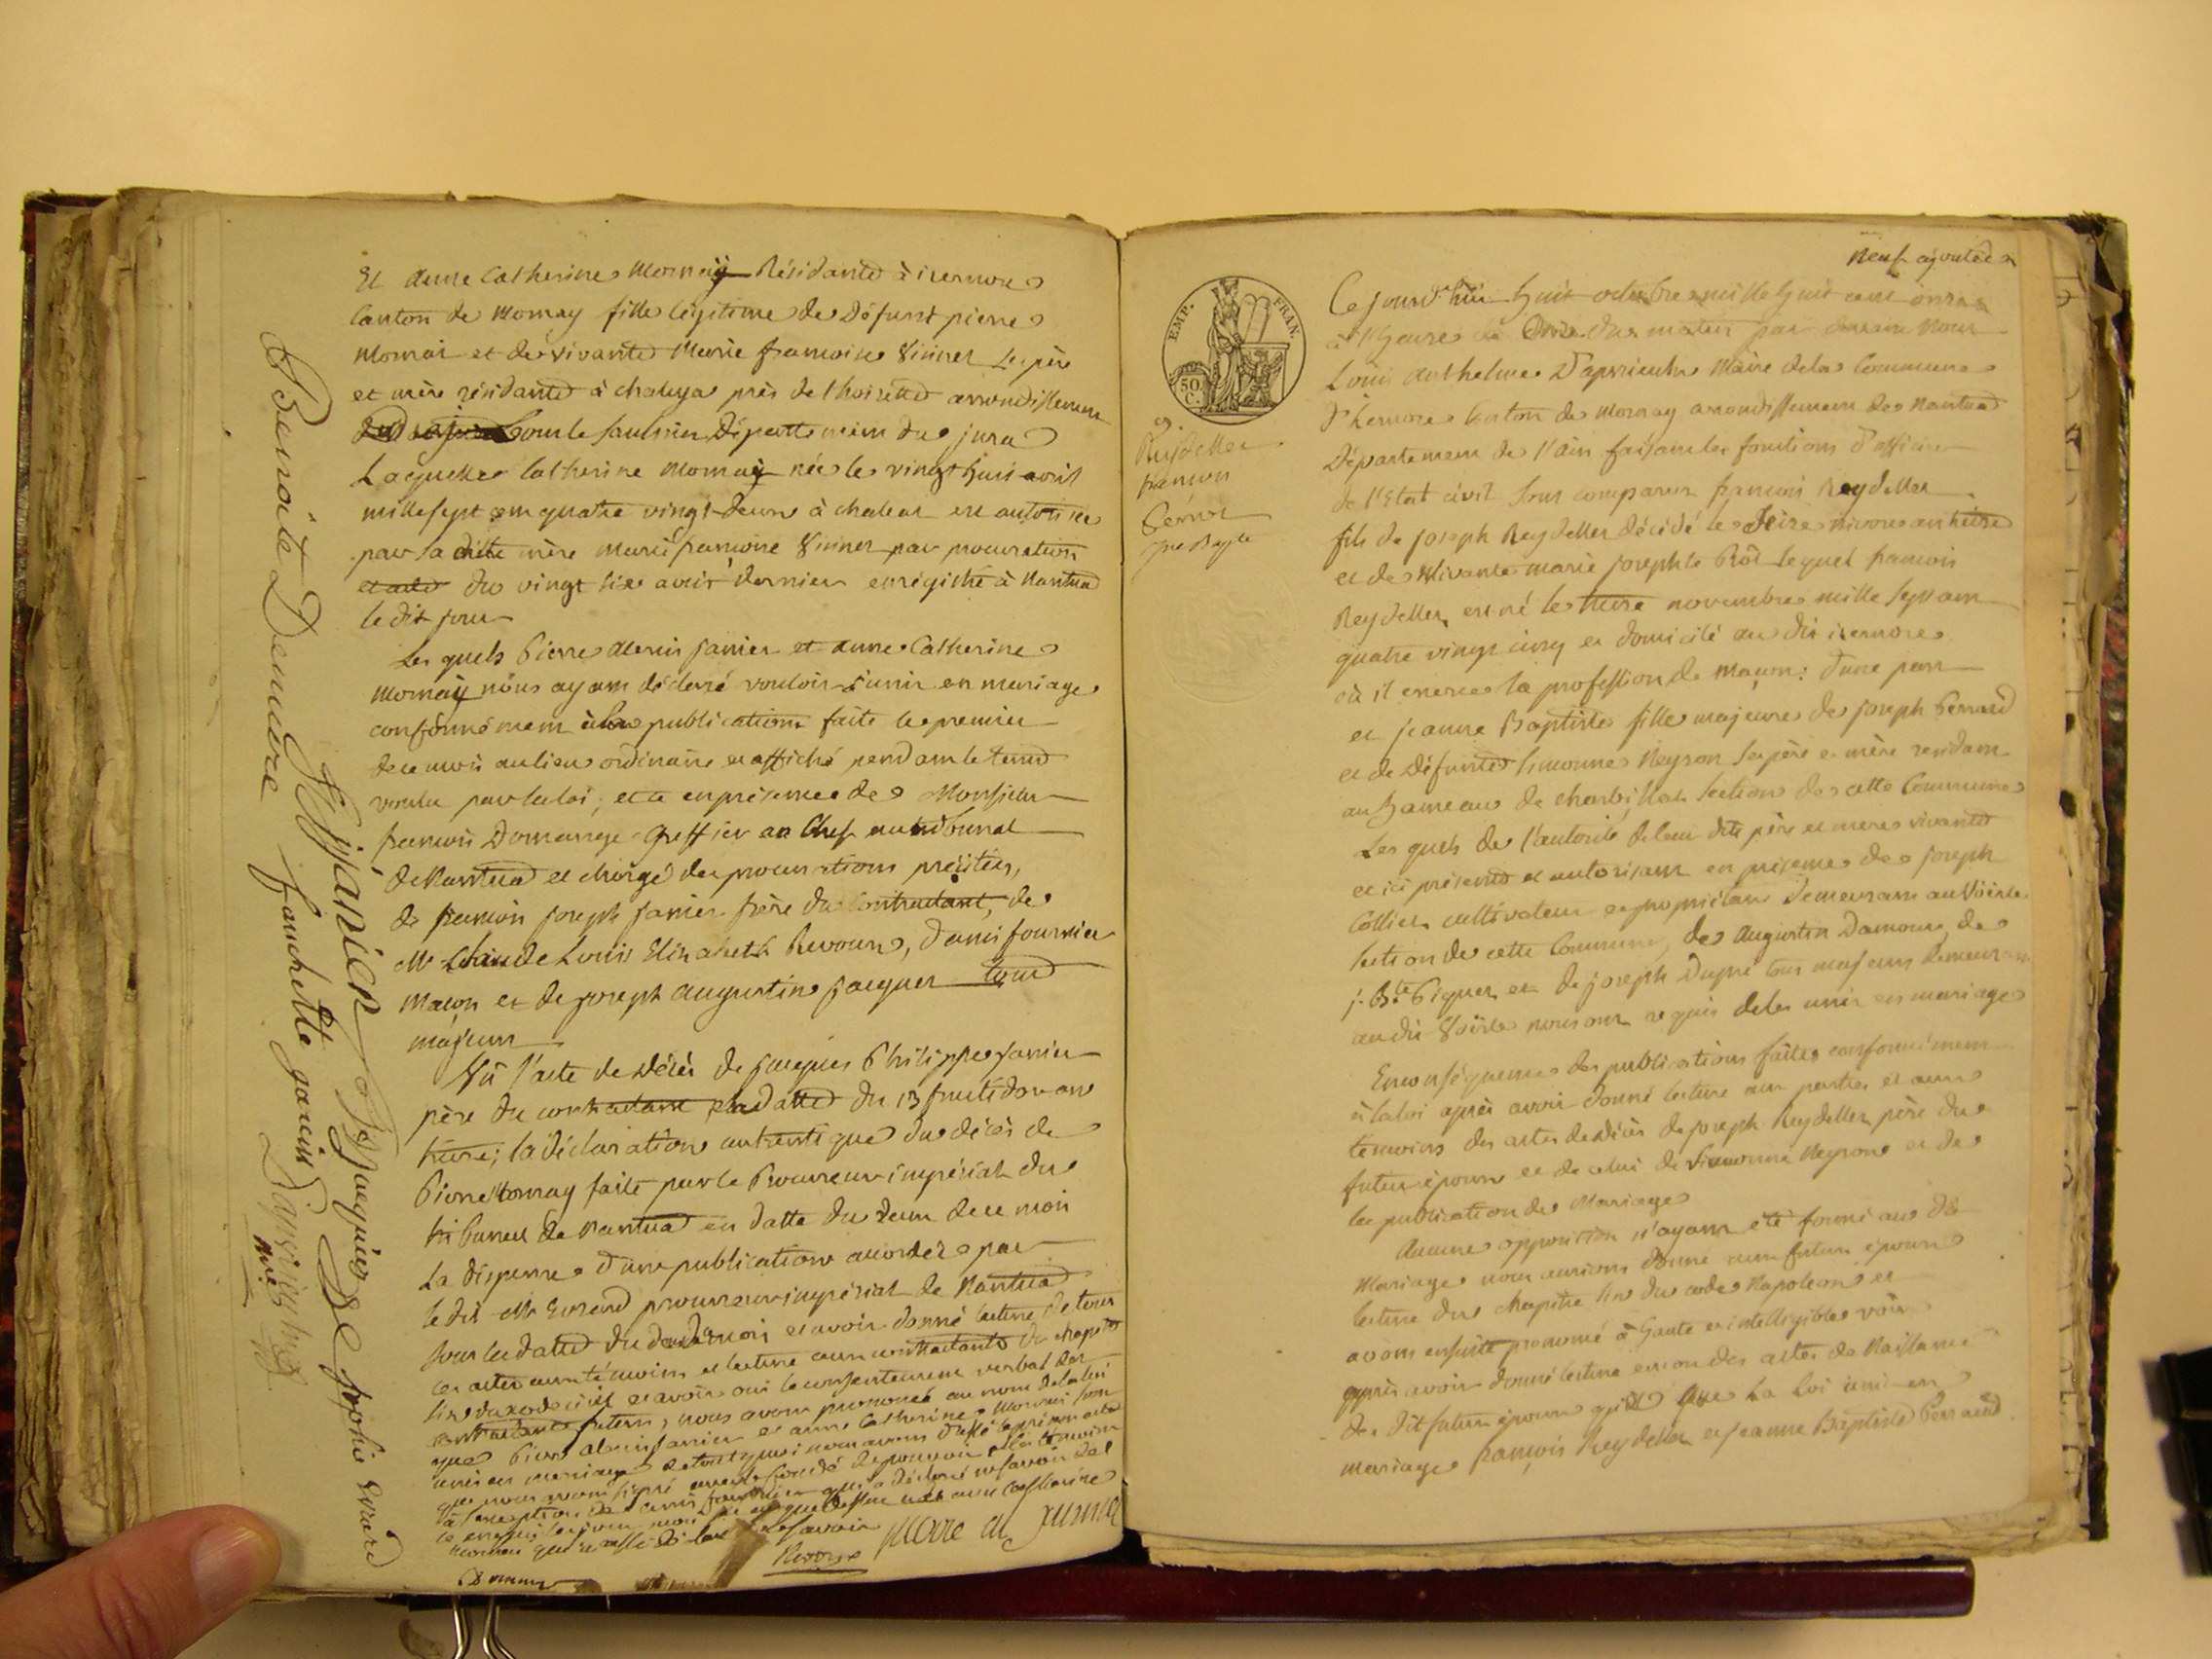 Et anne Catherine Mornay Résidante à isernore
Canton de Mornay fille légitime de Défunt pierre
Mornai et de vivante Marie francoise Vuiner Ses père
et mère résidante à chaleya près de thoirette arrondissement
Lons le Saulnier Département du jura
Laquelle Catherine Mornay née le vingt huit avril
mille sept cent quatre vingt deux à chaleat est autorisée
par sa ditte mère Marie francoise Vuiner par procuration
du vingt six avril dernier enrégistré à Nantua
le dit jour
Les quels Pierre alexis janier et anne Catherine
Mornay nous ayant déclaré vouloir s'unir en mariage
conformément à la publication faite le premier
de ce mois au lieu ordinaire et affiché pendant le tems
voulu par la loi, et ce en présence de Monsieur
francois Domange Greffier en Chef au tribunal
de Nantua et chargé des procurations précitées,
de francois joseph janier frère du Contractant, de
Mr Claude Louis Elisabeth Revoux, Denis fournier
Maçon et de joseph augustin jacquet tous
majeurs
Vû l'acte de décès de jacques Philippe janier
père du contractant en datte du 13 fructidor an
treize; la déclaration autentique du décès de
Pierre Mornay faite par le Procureur impérial du
tribunal de Nantua en datte du deux de ce mois
La dispense d'une publication accordée par
le dit Mr Evrard procureur impérial de Nantua
sous la datte du dit mois et avoir donné lecture de tous
ces actes aux témoins et lecture aux contractants du chapitre
six du code civil et avoir oui le consentement verbal des
contractans futurs, nous avons prononcé au nom de la loi
que Pierre alexis janier et anne Catherine Mornai sont
unis en mariage de tout quoi nous avons dressé le présent acte
que nous avons signé avec le fondé de pouvoir et les témoins
à l'exception de Denis fournier qui a déclaré ne savoir
anne Catherine
Revoux pierre al janier
Benoite Demeure fanchette gacin
FJ JANIER JA Jacquier Sophie Evrard
Dapvrieulx
mre
EMP. FRAN.
50 C.
Reydellet
francois
Perrod
jne Bapte
Neuf ajouted
Ce jourd'hui huit octobre mille huit cent onze
à l'heure de onze du matin par devant Nous
Louis anthelme Dapvrieulx Maire de la Commune
d'isernore Canton de Mornay arrondissement de Nantua
Département de l'ain faisant les fonctions d'officier
de l'Etat civil sont comparus francois Reydellet
fils de joseph Reydellet décédé le Seize nivose an treize
et de vivante marie josephte Prôt Lequel francois
Reydellet est né le treize novembre mille sept cent
quatre vingt cinq et domicilié au dit isernore
où il exerce la profession de Maçon: d'une part
et jeanne Baptiste fille majeure de joseph Perraud
et de défunte Simonne Neyron ses père et mère résidant
au hameau de charbillat Section de cette Commune
Les quels de l'autorité de leur dits père et mere vivants
et ici présents et autorisant en présence de joseph
Collier cultivateur et propriétaire Demeurant au Voërle
section de cette Commune, de Augustin Damour, de
j. Bte Piquet et de joseph Dupré tous majeurs demeurant
au dit Voërle nous ont requis de les unir en mariage
En conséquence des publications faites conformément
à la loi après avoir donné lecture aux parties et aux
temoins des actes de décès de joseph Reydellet père du
futur époux et de celui de Simonne Neyron et de
la publication de Mariage
Aucune opposition n'ayant été formé au dit
Mariage nous aurions donné aux futurs époux
lecture du chapitre six du code Napoléon et
avons ensuite prononcé à haute et intelligible voix
après avoir donné lecture encor des actes de Naissance
des dit futurs époux que La Loi unit en
mariage françois Reydellet et jeanne Baptiste Perraud